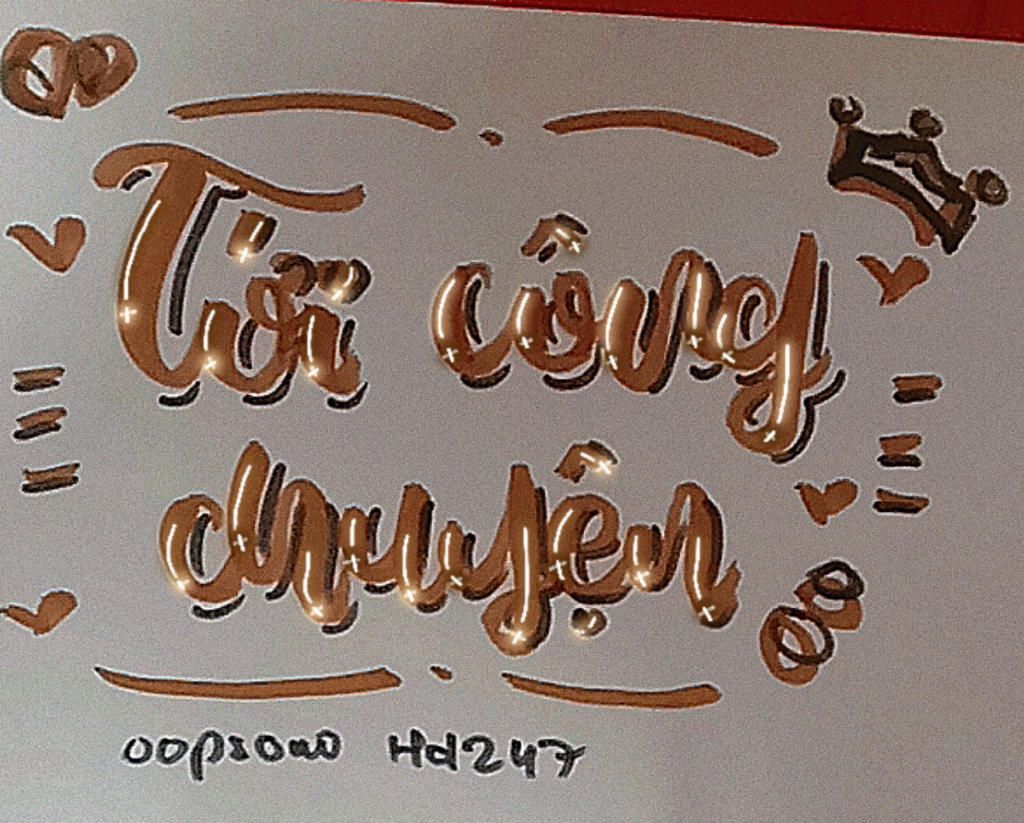 Tới công
chuyện
Hd247